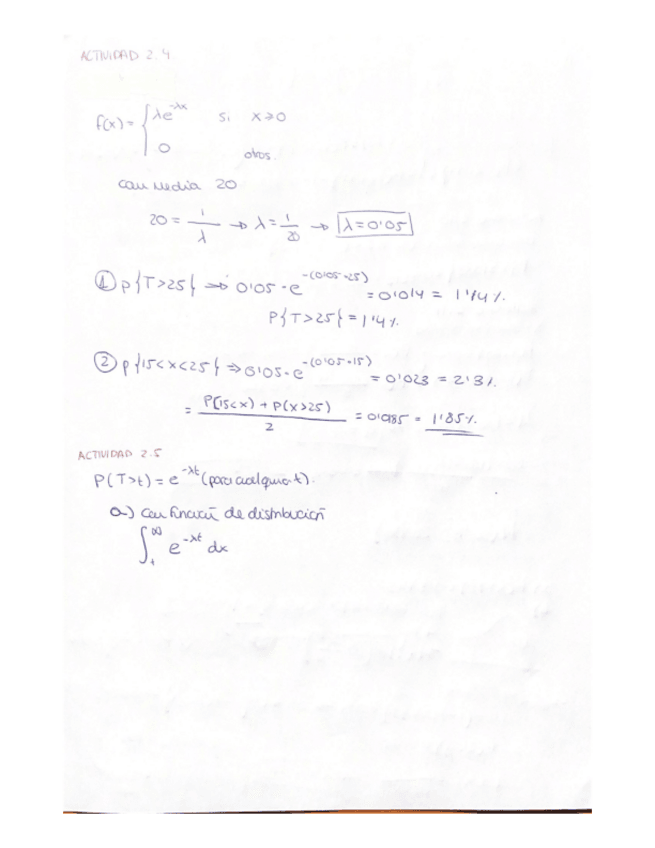 ACTIVIDAD 2.4
f(x) = { λe^-λx si x≥0
0 otros.
con media 20
20 = 1/λ → λ = 1/20 → λ = 0'05
① P{T>25} ⇒ 0'05 · e^-(0'05·25) = 0'014 = 1'4%
P{T>25} = 1'4%
② P{15<x<25} ⇒ 0'05 · e^-(0'05·15) = 0'023 = 2'3%
= P(15<x) + P(x>25) / 2 = 0'0185 = 1'85%
ACTIVIDAD 2.5
P(T>t) = e^-λt (para cualquier t).
a) con función de distribución
∫_t^∞ e^-λt dx